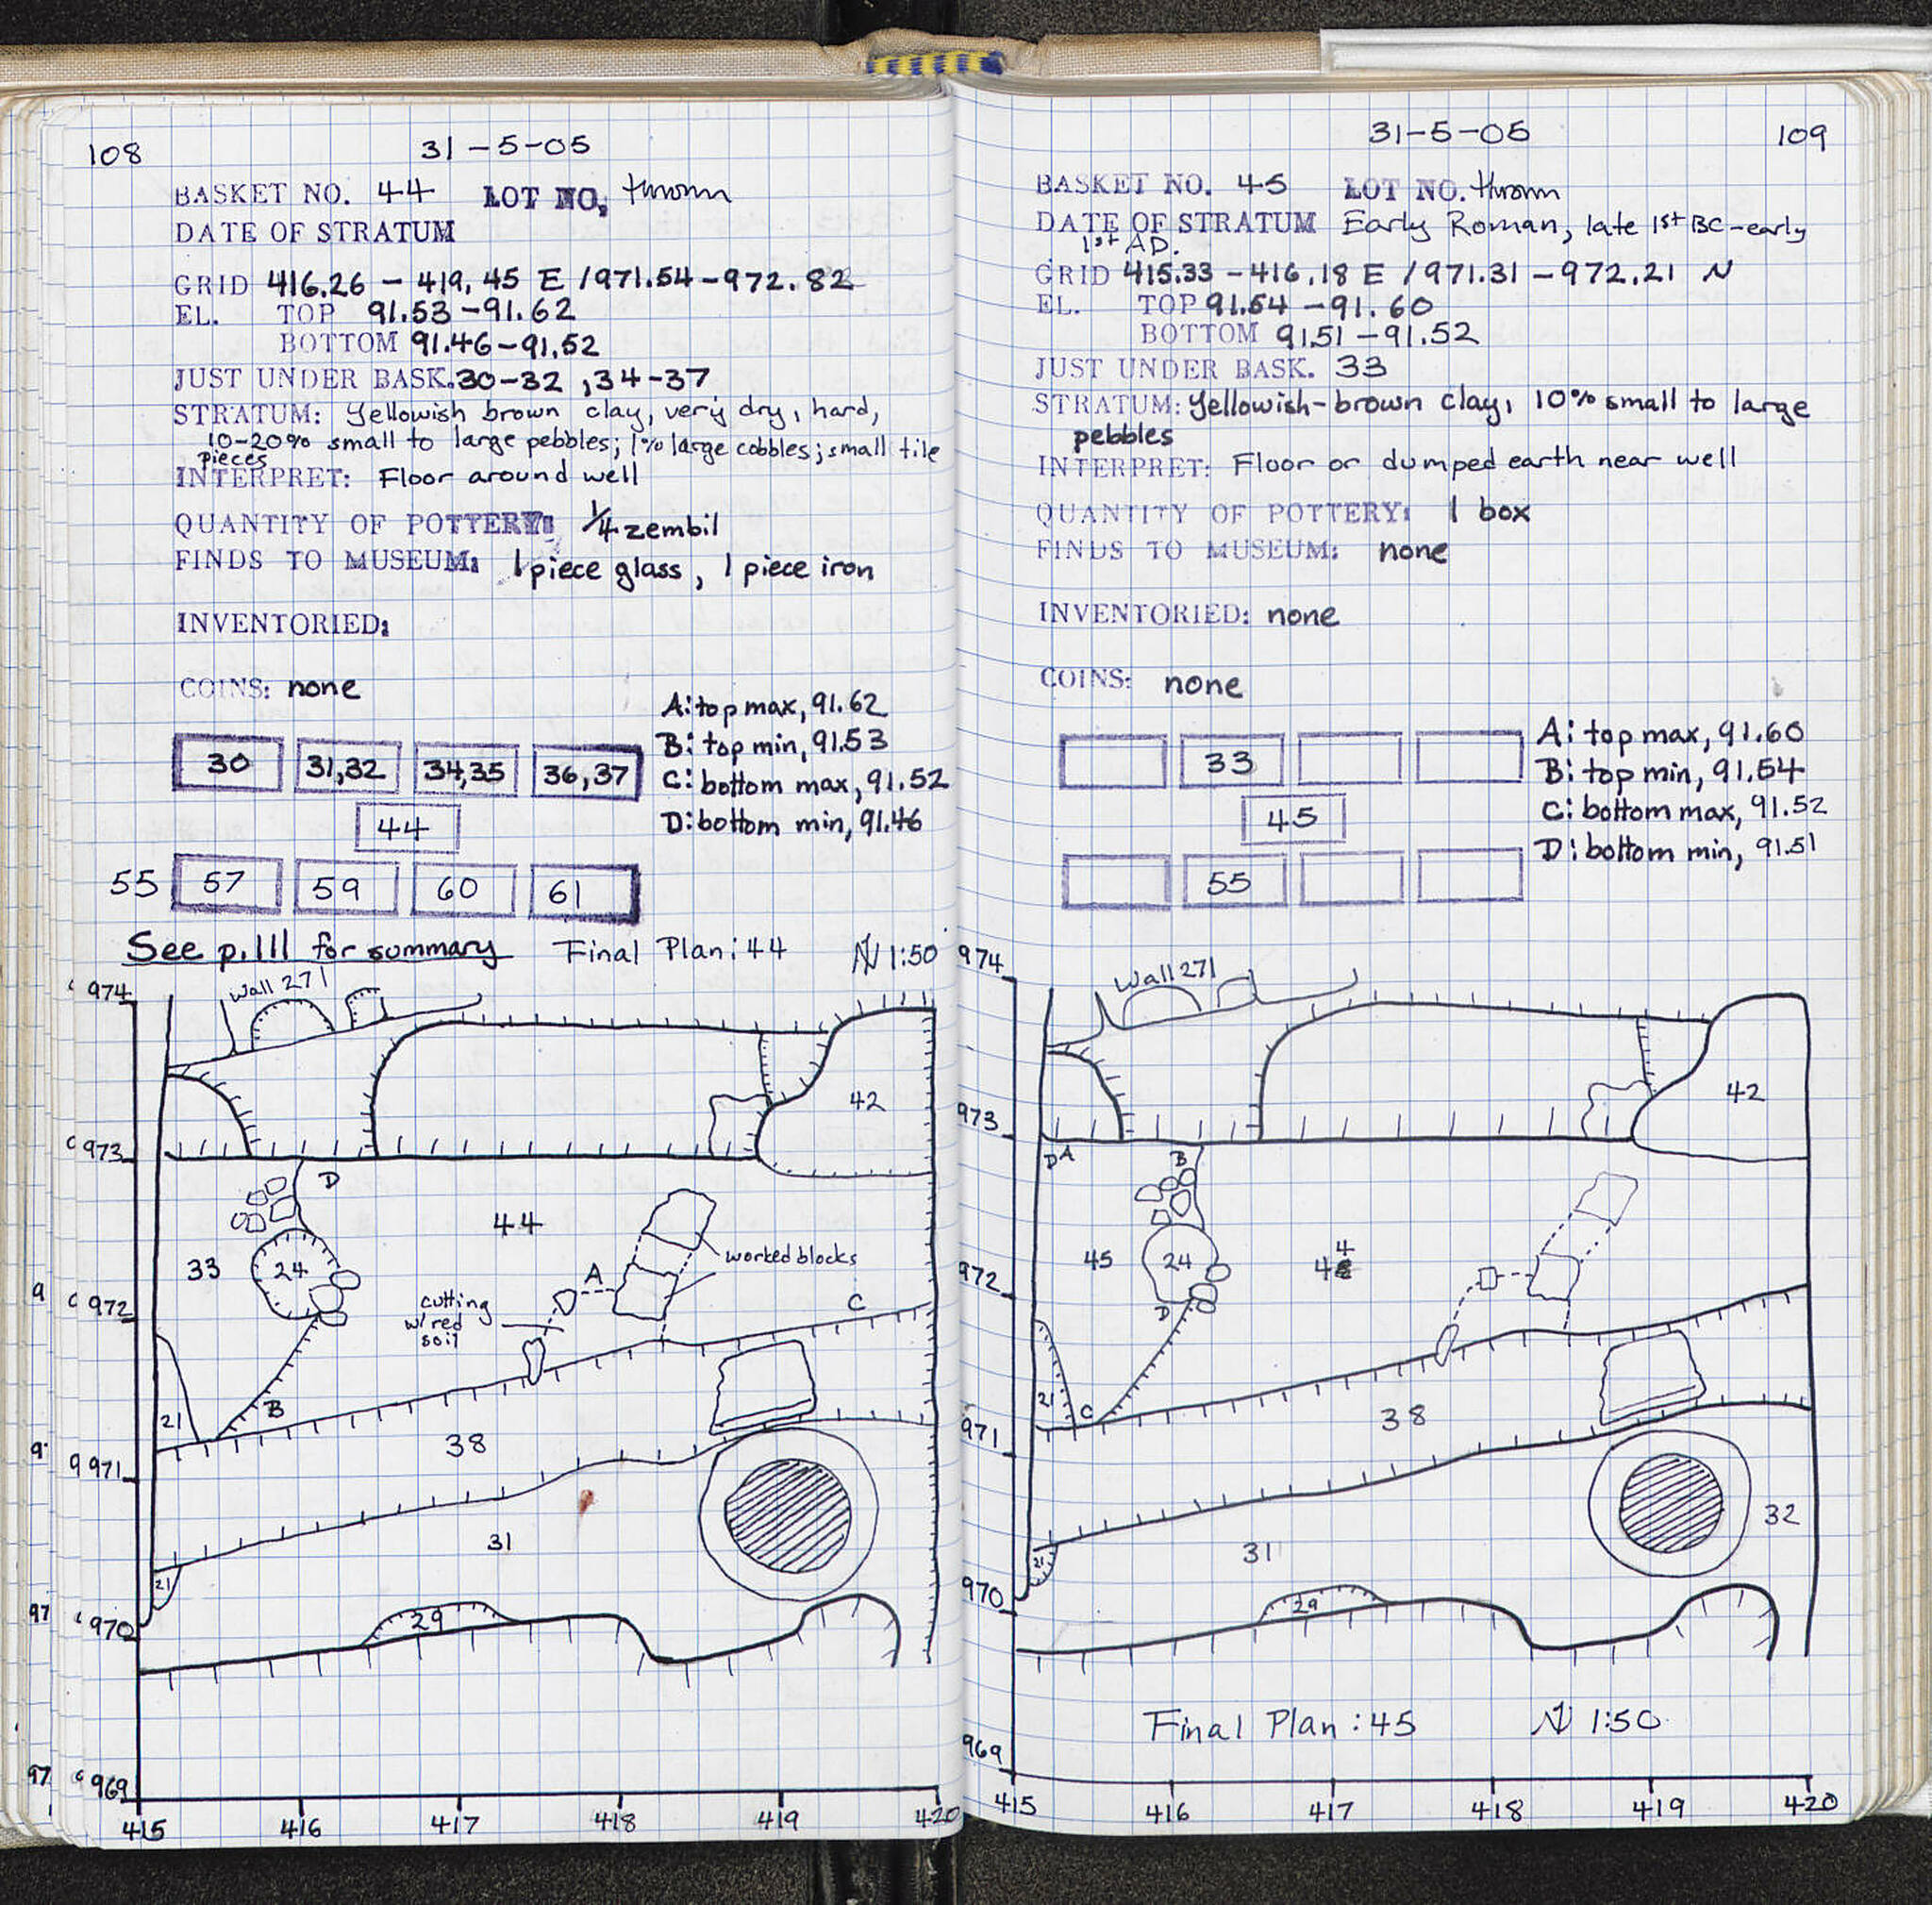 108
31-5-05
BASKET NO. 44 LOT NO. thrown
DATE OF STRATUM
GRID 416.26 - 419.45 E /971.54-972.82
EL. TOP 91.53-91.62
BOTTOM 91.46-91.52
JUST UNDER BASK. 30-32, 34-37
STRATUM: Yellowish brown clay, very dry, hard,
10-20% small to large pebbles; 1% large cobbles; small tile
pieces
INTERPRET: Floor around well
QUANTITY OF POTTERY: 1/4 zembil
FINDS TO MUSEUM: 1 piece glass, 1 piece iron
INVENTORIED:
COINS: none
A: top max, 91.62
B: top min, 91.53
C: bottom max, 91.52
D: bottom min, 91.46
30 31,32 34,35 36,37
44
55 57 59 60 61
See p.111 for summary Final Plan: 44 N 1:50
974
Wall 271
42
973
D
44
33
24
worked blocks
A
cutting
w/ red
soil
972
C
B
21
38
971
31
21
29
970
969
415 416 417 418 419 420
31-5-05
109
BASKET NO. 45 LOT NO. thrown
DATE OF STRATUM Early Roman, late 1st BC-early
1st AD.
GRID 415.33-416.18 E /971.31-972.21 N
EL. TOP 91.54-91.60
BOTTOM 91.51-91.52
JUST UNDER BASK. 33
STRATUM: Yellowish-brown clay, 10% small to large
pebbles
INTERPRET: Floor or dumped earth near well
QUANTITY OF POTTERY: 1 box
FINDS TO MUSEUM: none
INVENTORIED: none
COINS: none
A: top max, 91.60
B: top min, 91.54
C: bottom max, 91.52
D: bottom min, 91.51
33
45
55
974
Wall 271
42
973
D A
B
45
24
44
972
D
21
C
971
38
32
31
21
970
29
Final Plan: 45 N 1:50
969
415 416 417 418 419 420